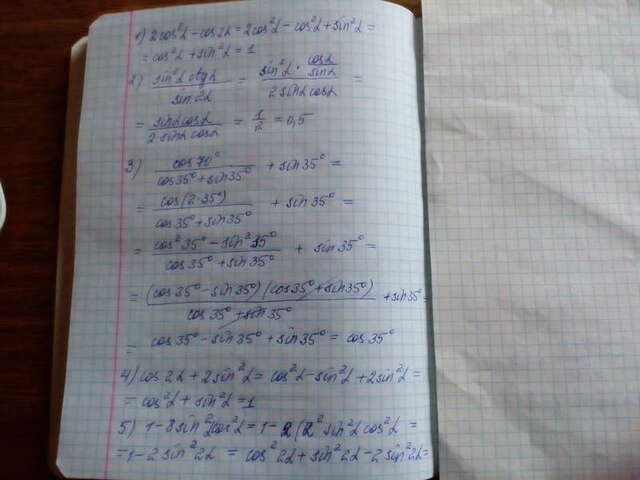 1) 2cos²α - cos2α = 2cos²α - cos²α + sin²α =
= cos²α + sin²α = 1
2) sin²α ctgα / sin2α = sin²α · cosα/sinα / 2sinα cosα =
= sinα cosα / 2sinα cosα = 1/2 = 0,5
3) cos70° / cos35° + sin35° + sin35° =
= cos(2·35°) / cos35° + sin35° + sin35° =
= cos²35° - sin²35° / cos35° + sin35° + sin35° =
= (cos35° - sin35°)(cos35° + sin35°) / cos35° + sin35° + sin35° =
= cos35° - sin35° + sin35° = cos35°
4) cos2α + 2sin²α = cos²α - sin²α + 2sin²α =
= cos²α + sin²α = 1
5) 1 - 8sin²αcos²α = 1 - 2(2²sin²α cos²α =
= 1 - 2sin²2α = cos²2α + sin²2α - 2sin²2α =